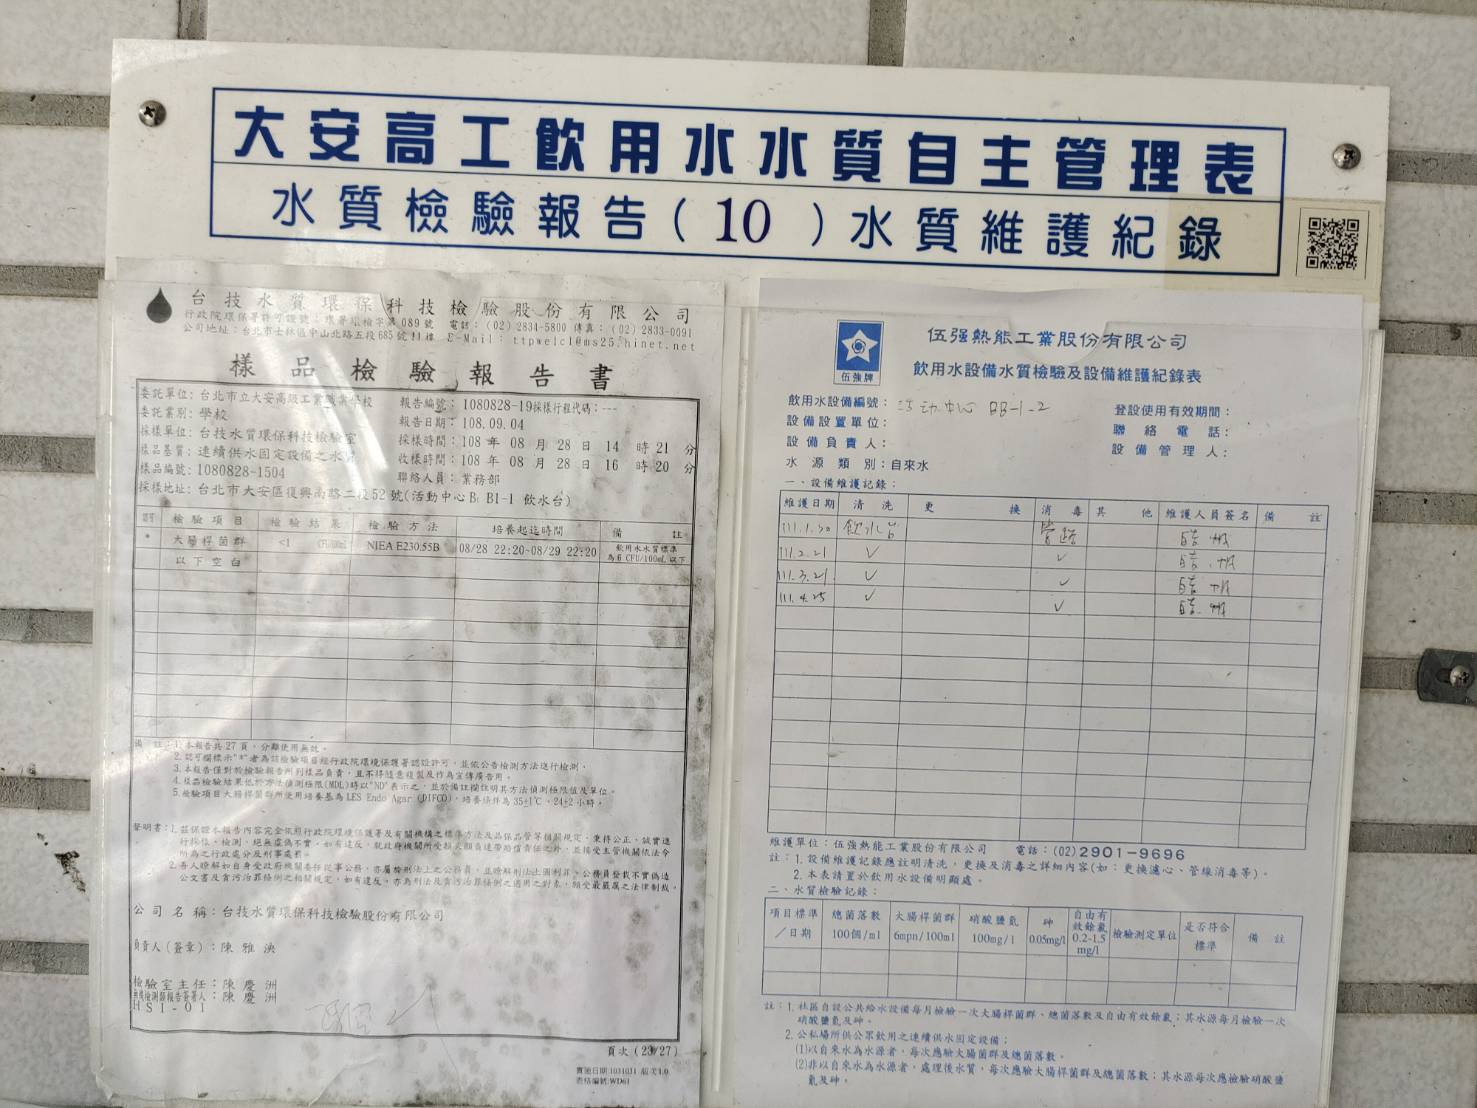 大安高工飲用水水質自主管理表
水質檢驗報告(10)水質維護紀錄
台技水質環保科技檢驗股份有限公司
行政院環保署許可證號：環署環檢字第089號 電話：(02)2834-5800 傳真：(02)2833-0091
公司地址：台北市士林區中山北路五段685號11樓 E-Mail：ttpwelcl@ms25.hinet.net
樣品檢驗報告書
委託單位：台北市立大安高級工業職業學校
委託業別：學校
採樣單位：台技水質環保科技檢驗室
樣品基質：連續供水固定設備之水質
樣品編號：1080828-1504
採樣地址：台北市大安區復興南路二段52號(活動中心B BI-1 飲水台)
報告編號：1080828-19採樣行程代碼：---
報告日期：108.09.04
採樣時間：108 年 08 月 28 日 14 時 21 分
收樣時間：108 年 08 月 28 日 16 時 20 分
聯絡人員：業務部
檢驗項目 檢驗結果 檢驗方法 培養起迄時間 備註
* 大腸桿菌群 <1 NIEA E230.55B 08/28 22:20~08/29 22:20 飲用水水質標準
為6 CFU/100mL以下
以下空白
備註：1.本報告共27頁，分離使用無效。
2.認可欄標示"*"者為該檢驗項目經行政院環境保護署認證許可，並依公告檢測方法進行檢測。
3.本報告僅對於檢驗報告所列樣品負責，且不得隨意複製及作為宣傳廣告用。
4.樣品檢驗結果低於方法偵測極限(MDL)時以"ND"表示之，並於備註欄註明其方法偵測極限值及單位。
5.檢驗項目大腸桿菌群所使用培養基為LES Endo Agar (DIFCO)，培養條件為35±1℃、24±2小時。
聲明書：1.茲保證本報告內容完全依照行政院環境保護署及有關機構之標準方法及品保品管等相關規定，秉持公正、誠實進
行採樣、檢測，絕無虛偽不實，如有違反，就政府機關所受損失願負連帶賠償責任之外，並接受主管機關依法令
所為之行政處分及刑事處罰。
2.吾人瞭解如自身受政府機關委任從事公務，亦屬於刑法上之公務員，並瞭解刑法上圖利罪、公務員登載不實偽造
公文書及貪污治罪條例之相關規定，如有違反，亦為刑法及貪污治罪條例之適用之對象，願受最嚴厲之法律制裁。
公司名稱：台技水質環保科技檢驗股份有限公司
負責人(簽章)：陳雅泱
檢驗室主任：陳慶洲
無機檢測類報告簽署人：陳慶洲
HSI-01
頁次(23/27)
實施日期:1031031 版次1.0
表格編號:WD61
伍強牌
伍强熱能工業股份有限公司
飲用水設備水質檢驗及設備維護紀錄表
飲用水設備編號：活动中心 BB-1-2
設備設置單位：
設備負責人：
水源類別：自來水
登設使用有效期間：
聯絡電話：
設備管理人：
一、設備維護記錄：
維護日期 清洗 更換 消毒 其他 維護人員簽名 備註
111.1.20 飲水台 管路
111.2.21 ✓ ✓
111.3.21 ✓ ✓
111.4.25 ✓ ✓
維護單位：伍强熱能工業股份有限公司 電話：(02)2901-9696
註：1.設備維護記錄應註明清洗，更換及消毒之詳細內容(如：更換濾心、管線消毒等)。
2.本表請置於飲用水設備明顯處。
二、水質檢驗記錄：
項目標準／日期 總菌落數 100個/ml 大腸桿菌群 6mpn/100ml 硝酸鹽氮 100mg/l 砷 0.05mg/l 自由有效餘氯 0.2-1.5 mg/l 檢驗測定單位 是否符合標準 備註
註：1.社區自設公共給水設備每月檢驗一次大腸桿菌群、總菌落數及自由有效餘氯；其水源每月檢驗一次
硝酸鹽氮及砷。
2.公私場所供公眾飲用之連續供水固定設備：
(1)以自來水為水源者，每次應驗大腸桿菌群及總菌落數。
(2)非以自來水為水源者，處理後水質，每次應驗大腸桿菌群及總菌落數；其水源每次應檢驗硝酸鹽
氮及砷。